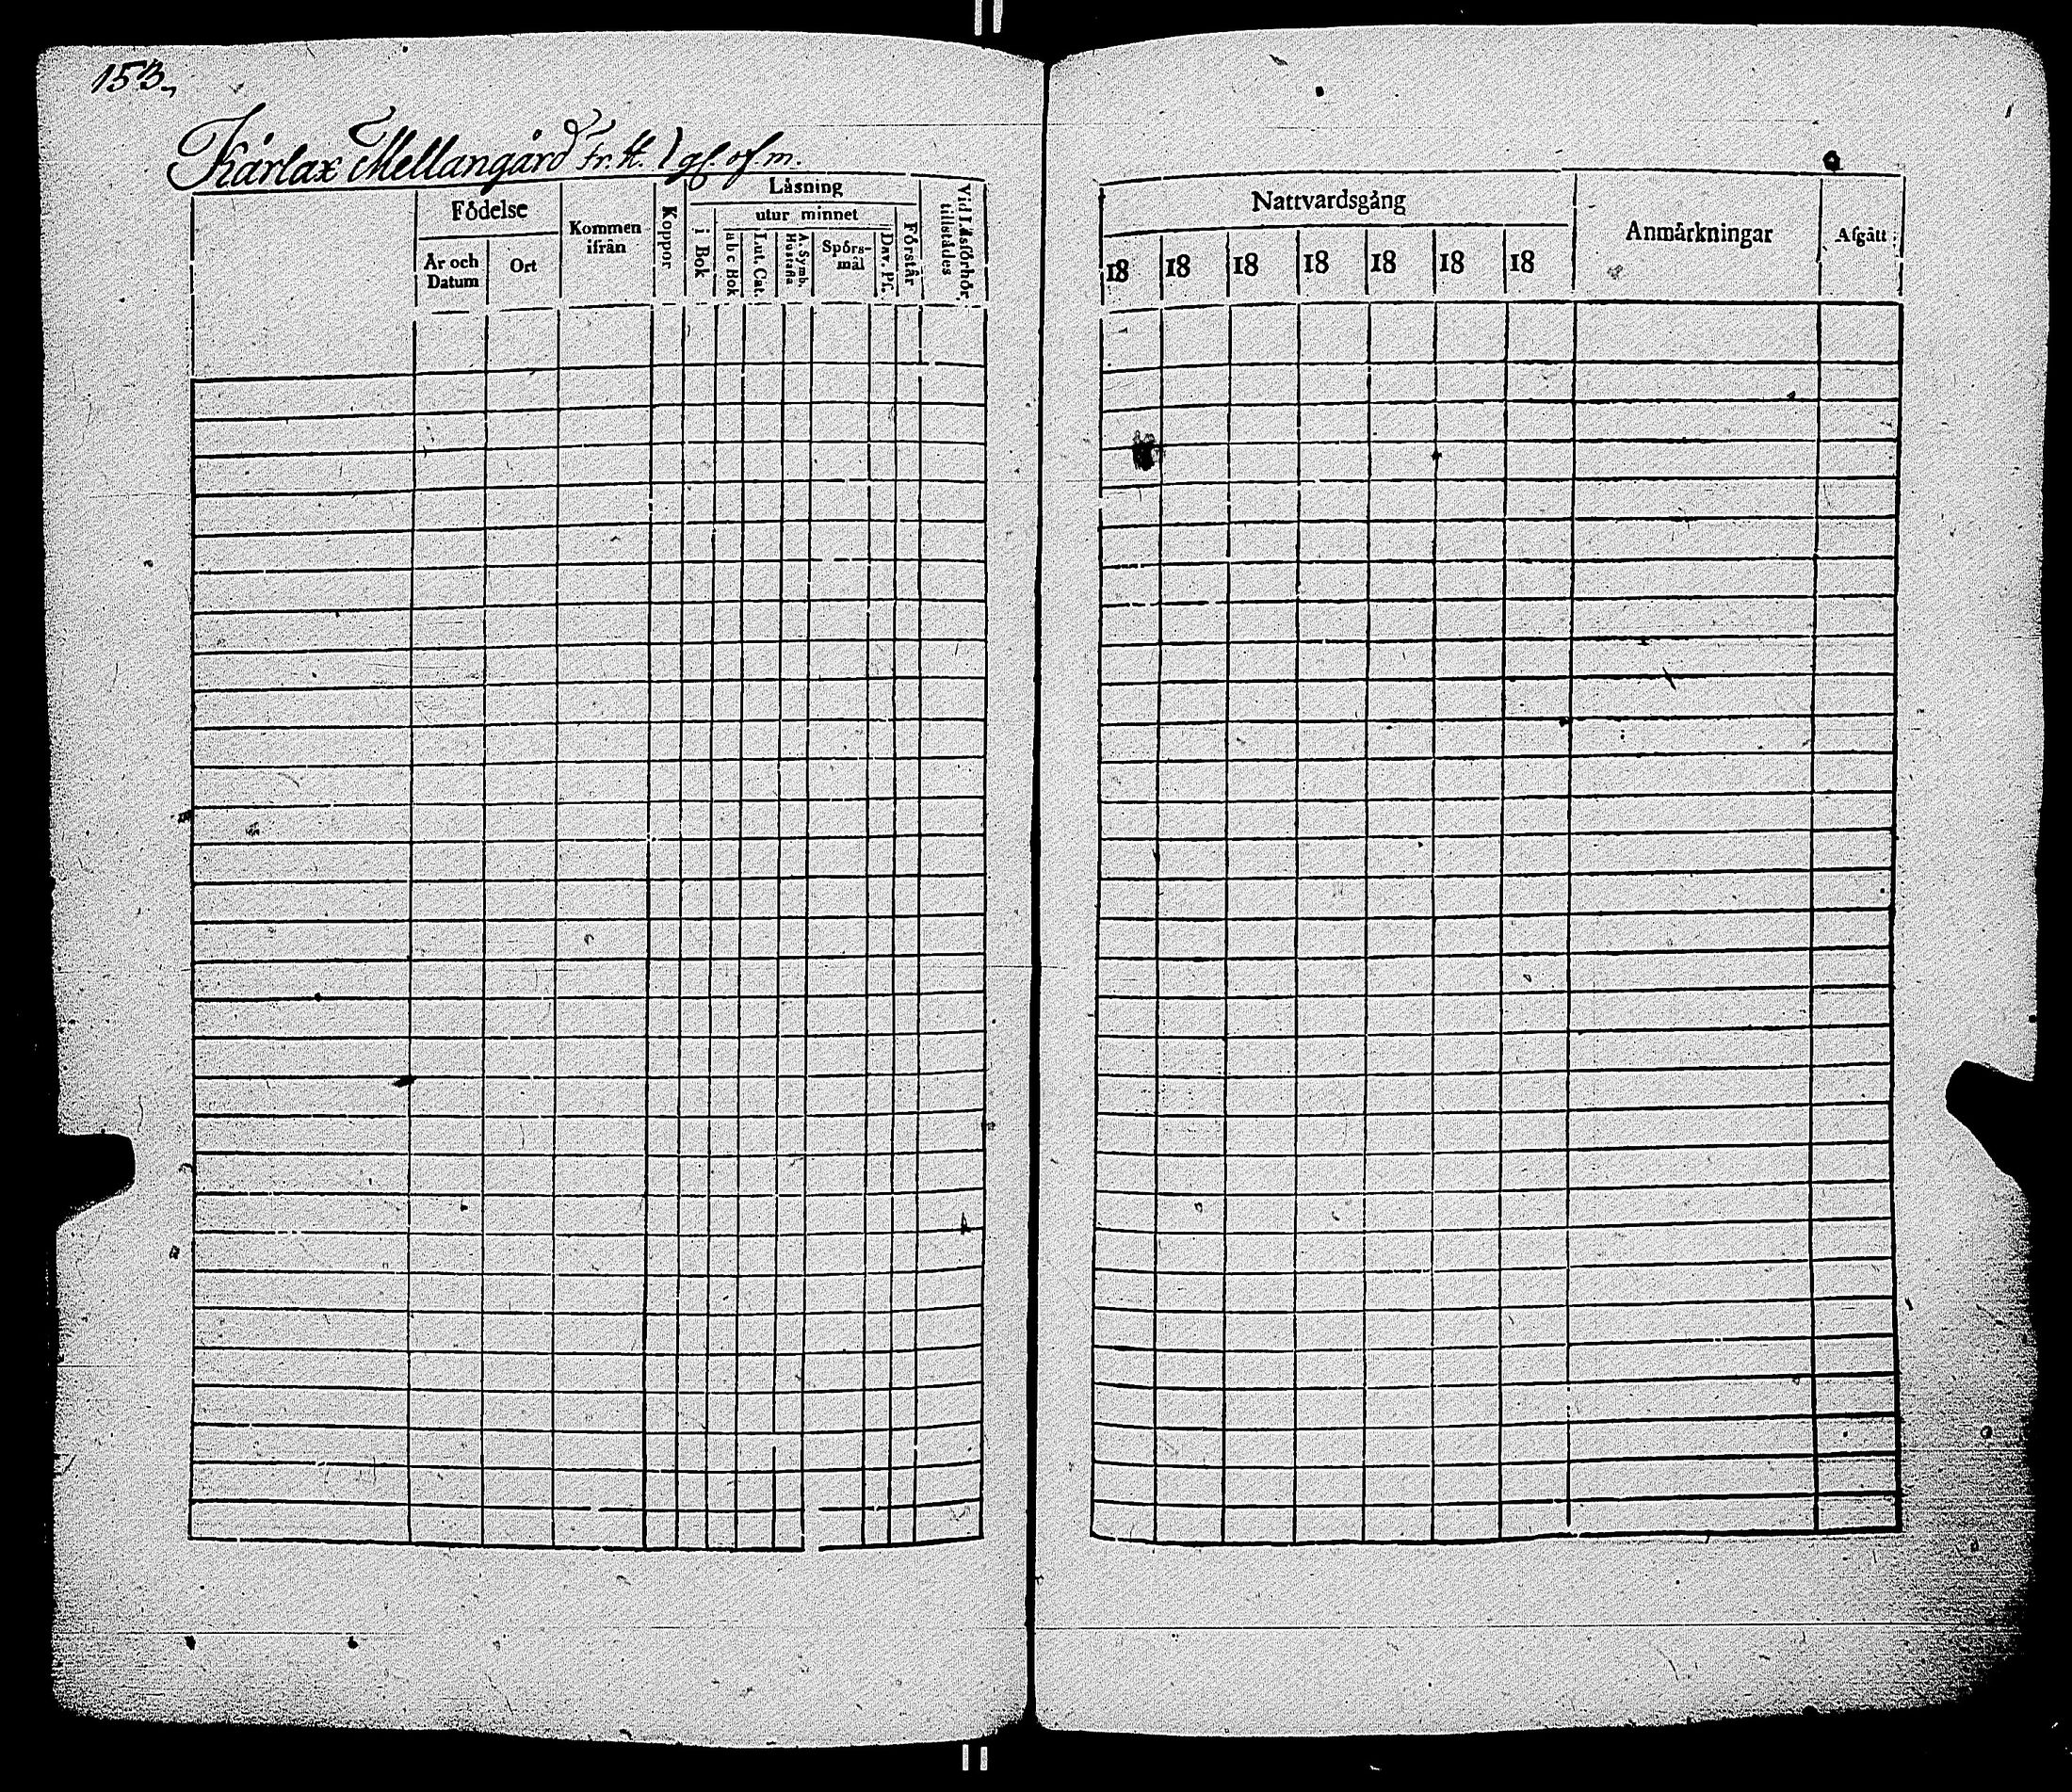 153.
Kårlax Mellangård Fr. H. 1 gl. of. m.
Födelse
År och Datum
Ort
Kommen ifrån
Koppor
Läsning
i Bok
utur minnet
a b c Bok
Lut. Cat.
A. Symb. Hustafla
Spörsmål
Dav. Ps.
Förstår
Vid Läsförhör tillstådes
Nattvardsgång
18 18 18 18 18 18 18
Anmärkningar
Afgått